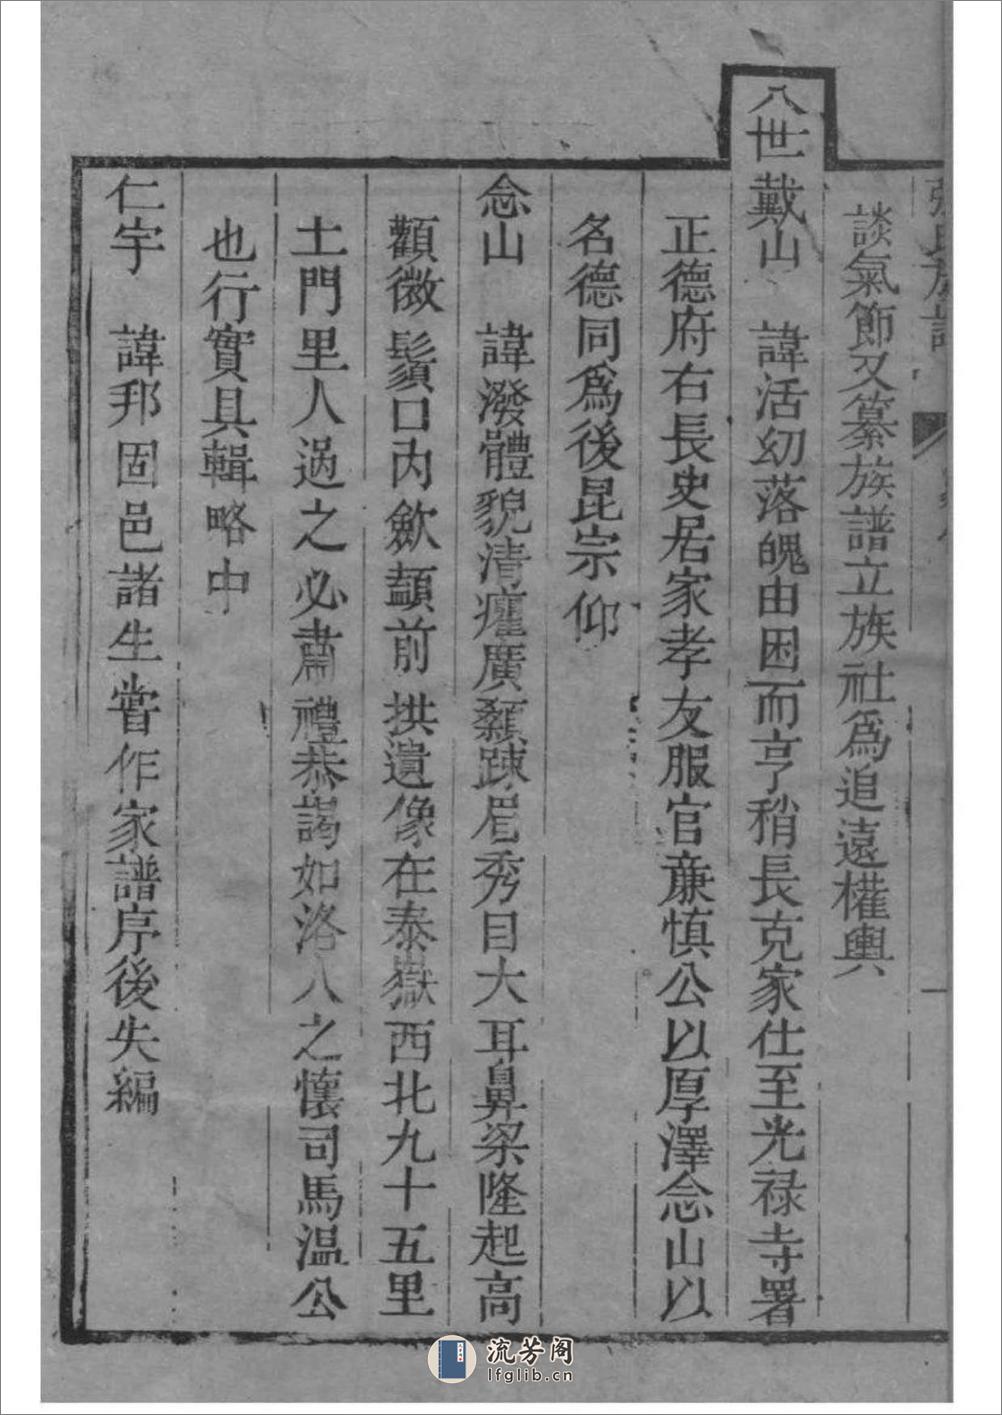 張氏族譜
談氣節又纂族譜立族社爲追遠權輿
八世戴山　諱活幼落魄由困而亨稍長克家仕至光祿寺署
正德府右長史居家孝友服官亷慎公以厚澤念山以
名德同爲後昆宗仰
念山　諱潑體貌清癯廣顙踈眉秀目大耳鼻梁隆起高
顴微鬚口內歛頿前拱遺像在泰嶽西北九十五里
土門里人過之必肅禮恭謁如洛人之懷司馬温公
也行實具輯略中
仁宇　諱邦固邑諸生嘗作家譜序後失編
流芳阁
lfglib.cn